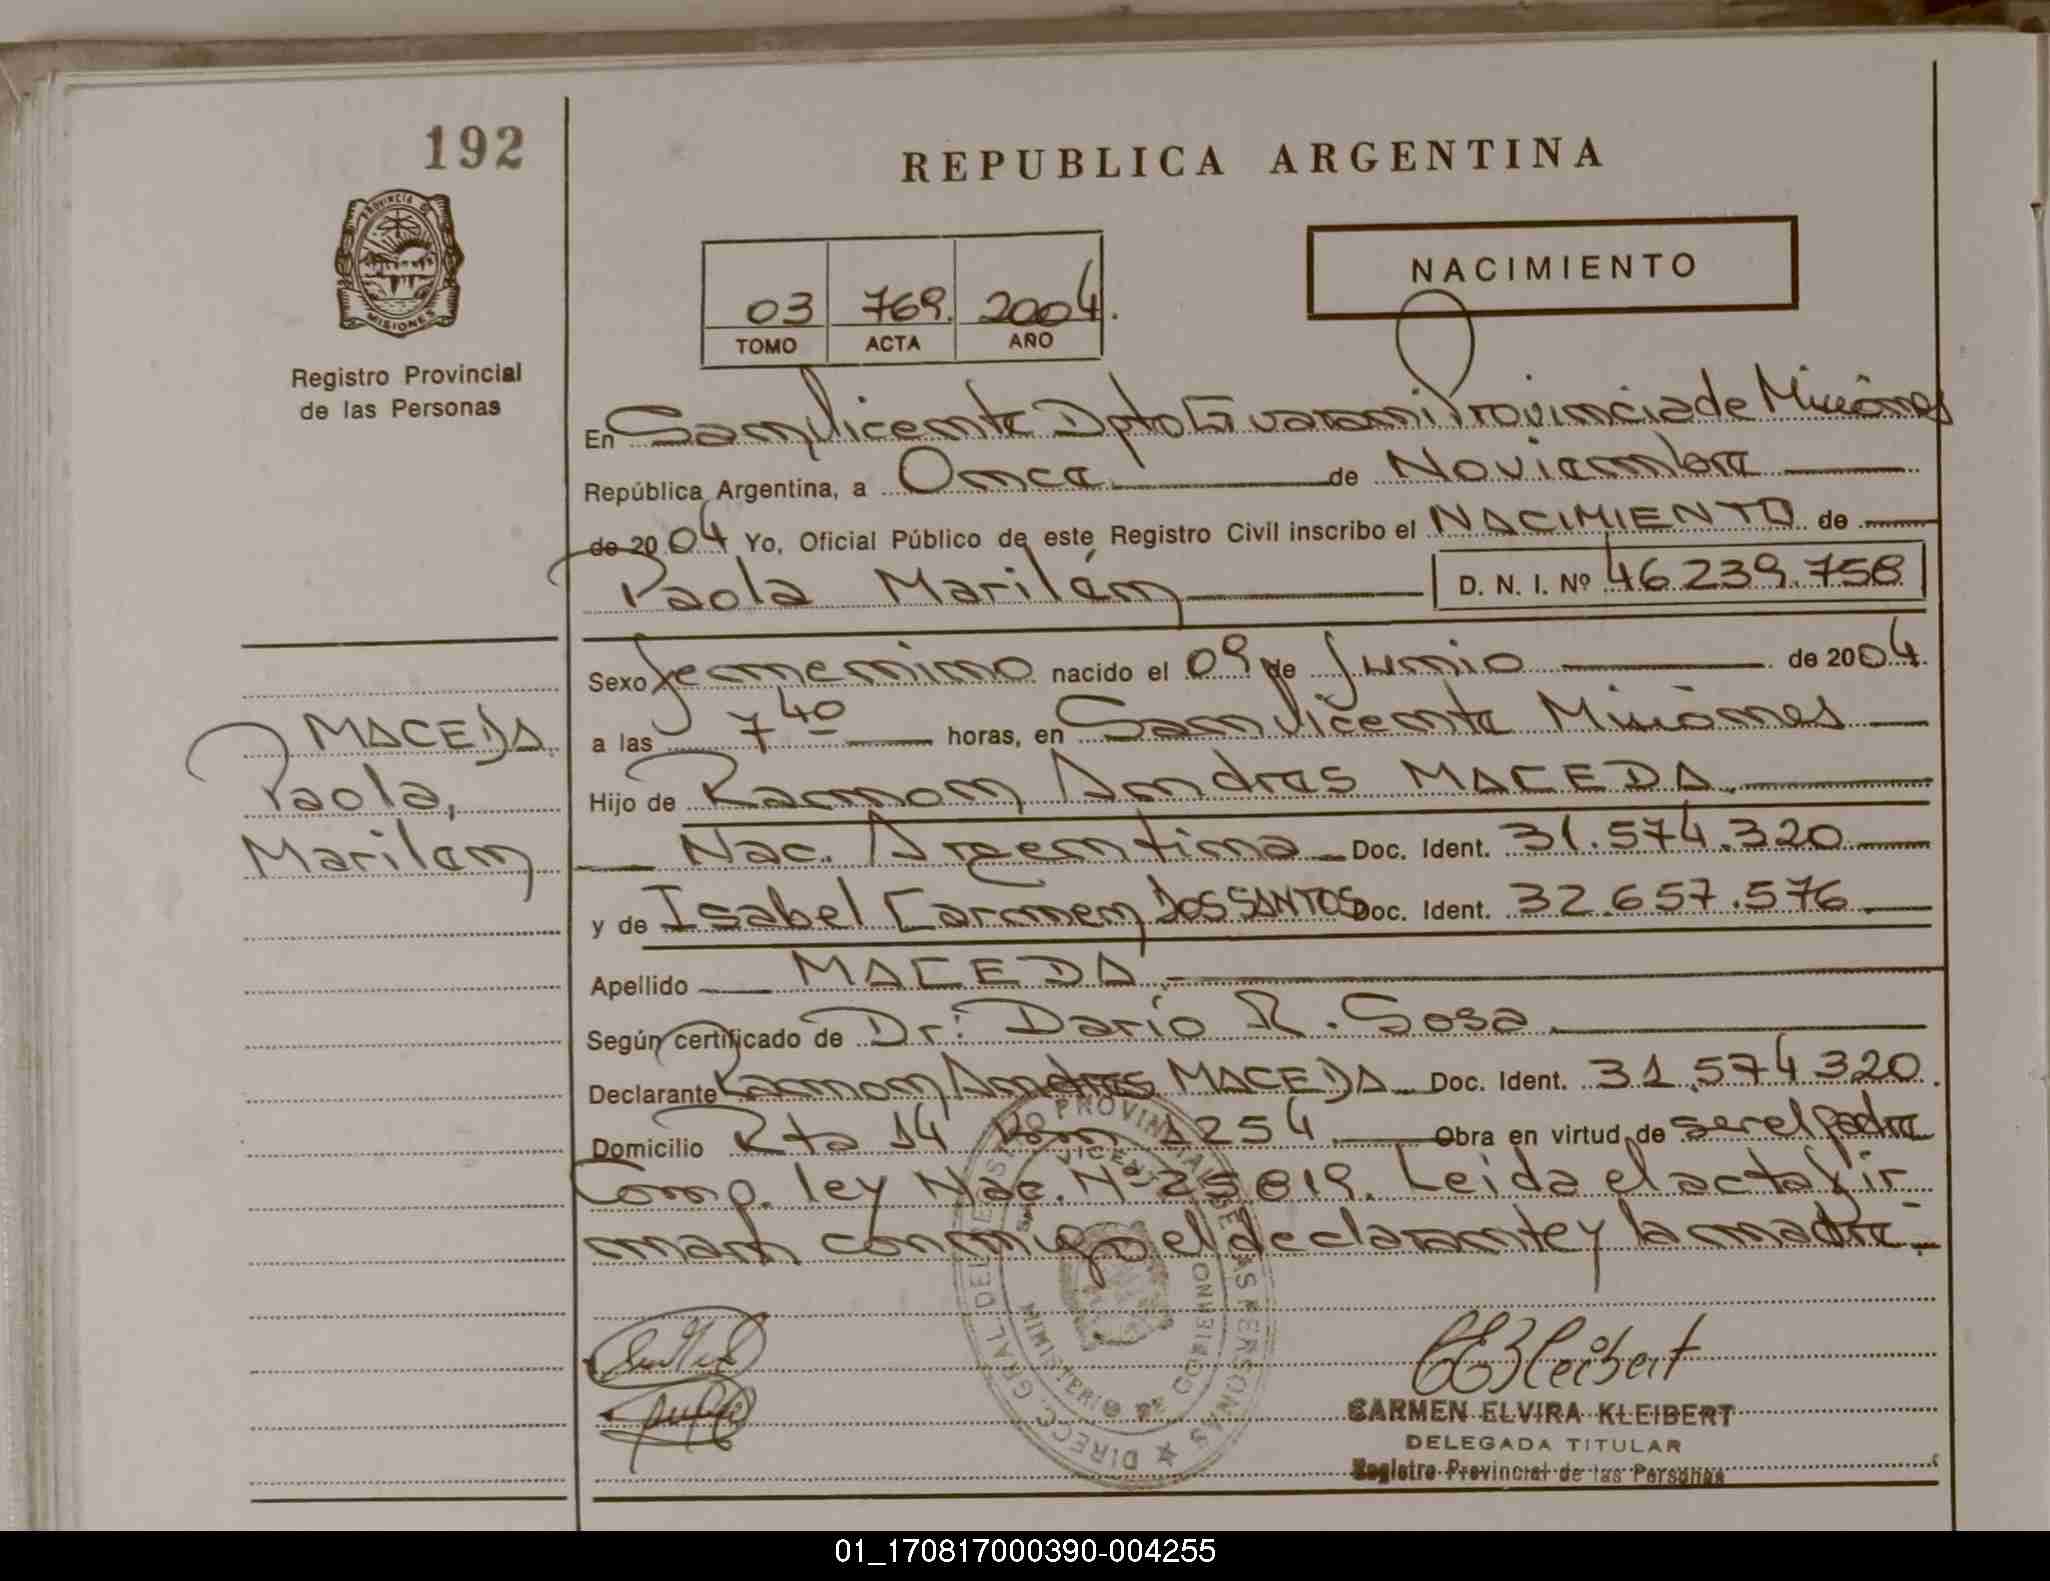 192
REPUBLICA ARGENTINA
PROVINCIA DE
MISIONES
Registro Provincial
de las Personas
NACIMIENTO
03 769. 2004.
TOMO ACTA AÑO
En San Vicente Dpto Guarani Provincia de Misiones
República Argentina, a Once de Noviembre
de 2004 Yo, Oficial Público de este Registro Civil inscribo el NACIMIENTO de
Paola Marilén D. N. I. Nº 46.239.758
Sexo femenino nacido el 09 de Junio de 2004.
a las 7 40 horas, en San Vicente Misiones
Hijo de Ramon Andres MACEDA
Nac. Argentina Doc. Ident. 31.574.320
y de Isabel Carmen DOS SANTOS Doc. Ident. 32.657.576
Apellido MACEDA
Según certificado de Dr. Darío R. Sosa
Declarante Ramon Andres MACEDA Doc. Ident. 31.574.320
Domicilio Rta 14 Km 1254 Obra en virtud de ser el padre
Comp. ley Nac. Nº 25819. Leida el acta fir
man conmigo el declarante y la madre.
MACEDA
Paola,
Marilén
DIRECC. GRAL. DEL REGISTRO PROVINCIAL DE LAS PERSONAS
MINISTERIO DE GOBIERNO
SAN VICENTE
CEKleibert
CARMEN ELVIRA KLEIBERT
DELEGADA TITULAR
Registro Provincial de las Personas
01_170817000390-004255